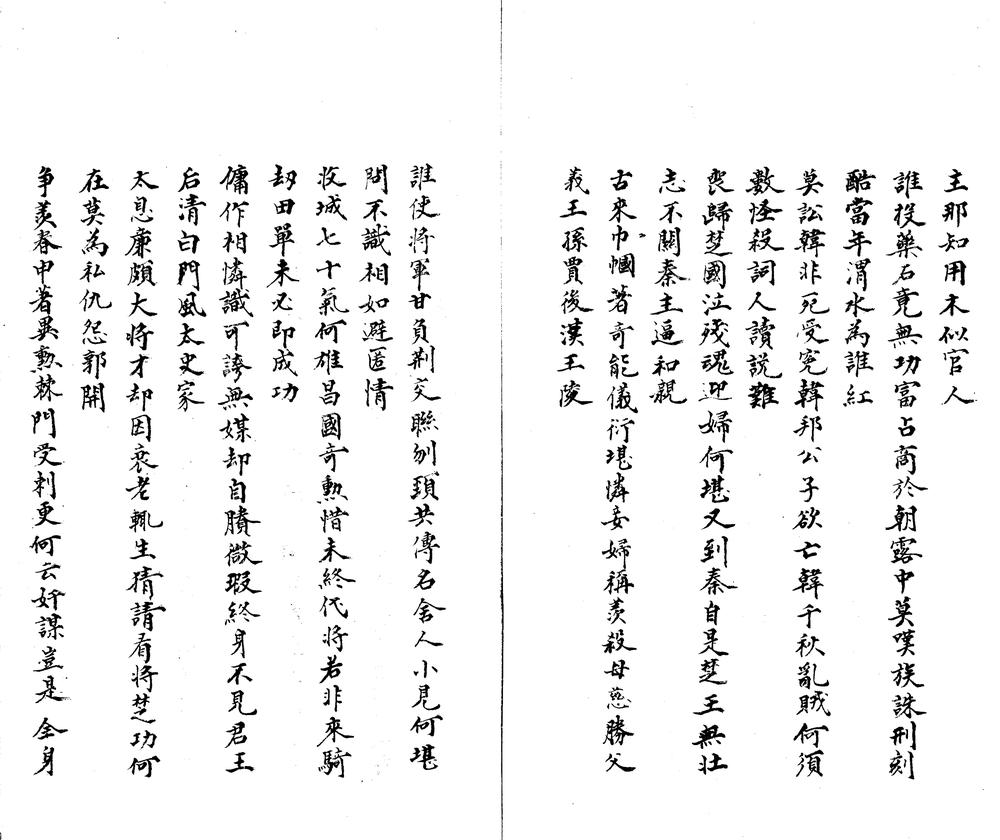 主那知用木似官人
誰投藥石竟無功富占商於朝露中莫嘆族誅刑刻
酷當年渭水為誰紅
莫訟韓非死受寃韓邦公子欲亡韓千秋亂賊何須
數怪殺詞人讀説難
喪歸楚國泣殘魂迎婦何堪又到秦自是楚王無壮
志不關秦主逼和親
古來巾幗著奇能儀衍堪憐妾婦稱羨殺母慈勝父
義王孫賈後漢王陵
誰使将軍甘負荆交聮刎頚共傳名舍人小見何堪
問不識相如避匿情
收城七十氣何雄昌國奇勲惜未終代将若非來騎
刼田單未必即成功
傭作相憐識可誇無媒却自臏微瑕終身不見君王
后清白門風太史家
太息廉頗大将才却因衰老輒生猜請看将楚功何
在莫為私仇怨郭開
争羨春申著異勲棘門受刺更何云奸謀豈是全身